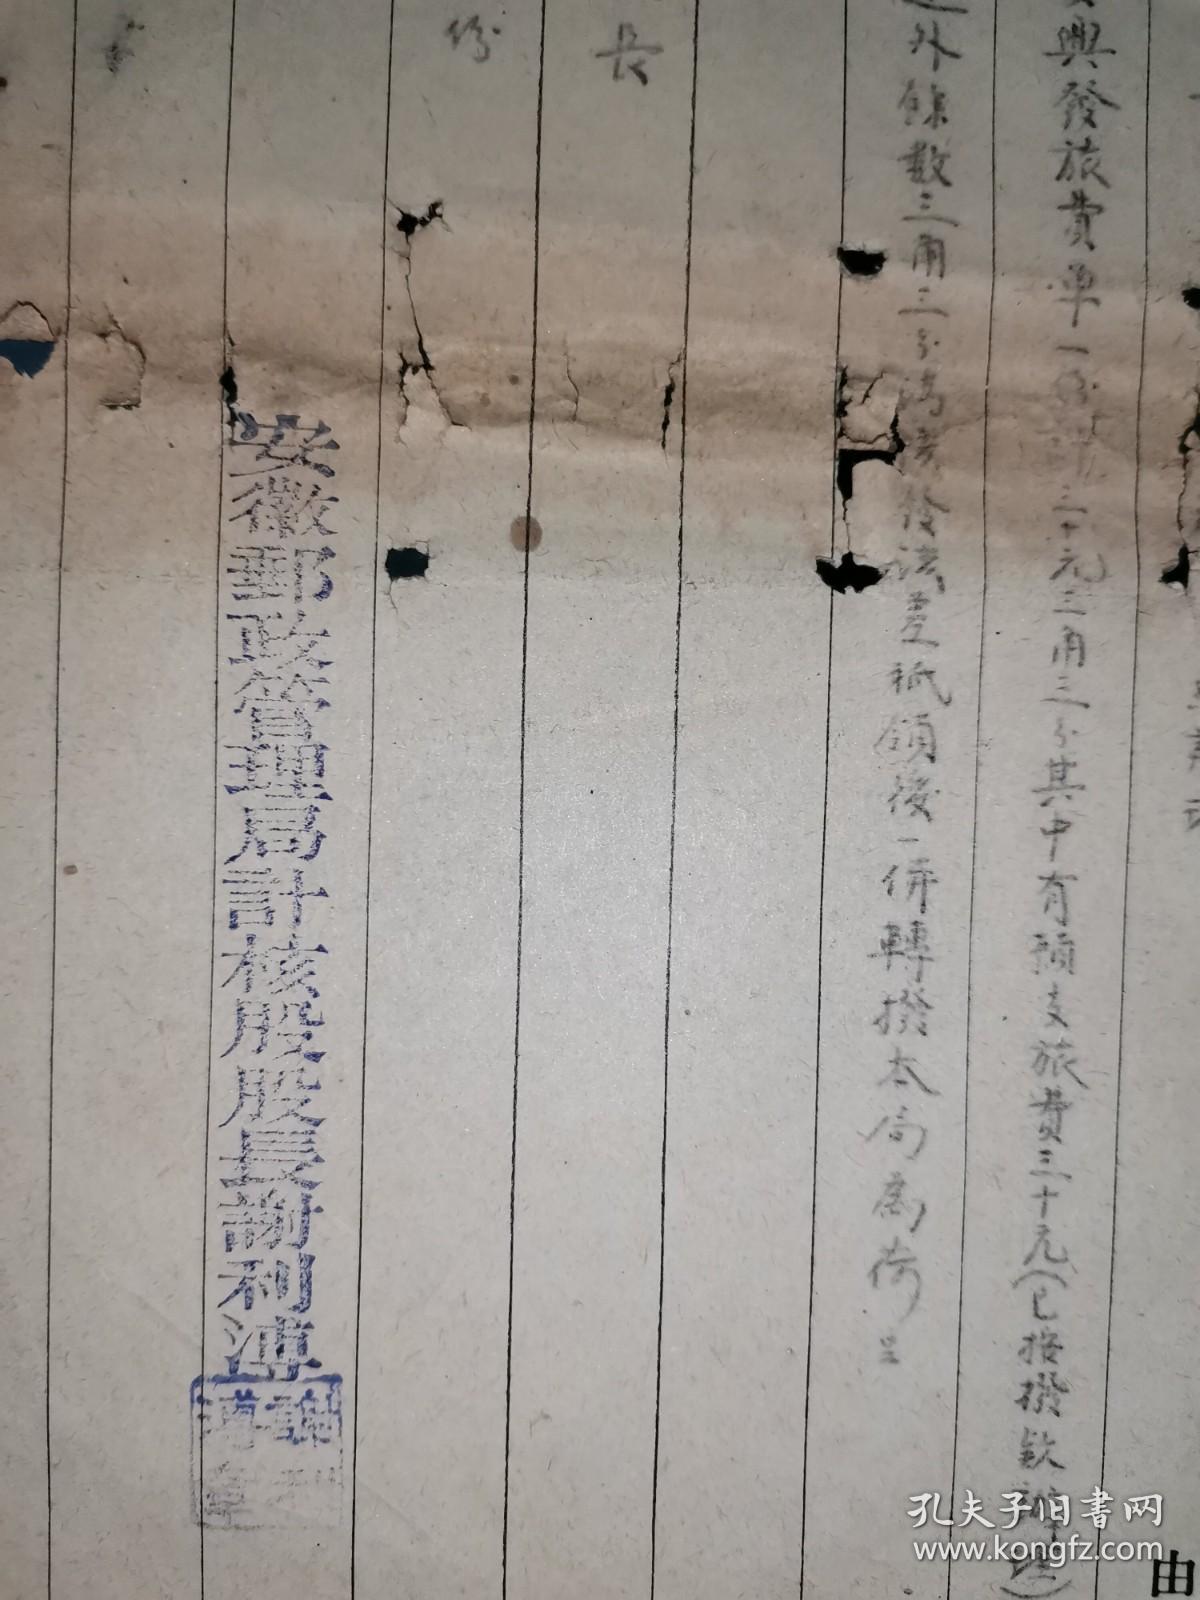 興發旅費單一份計三十元三角三分其中有預支旅費三十元(已按撥款辦理)
外餘數三角三分請發該差祇領後一併轉撥本局為荷呈
長
份
安徽郵政管理局計核股股長謝利溥
由
孔夫子旧书网
www.kongfz.com